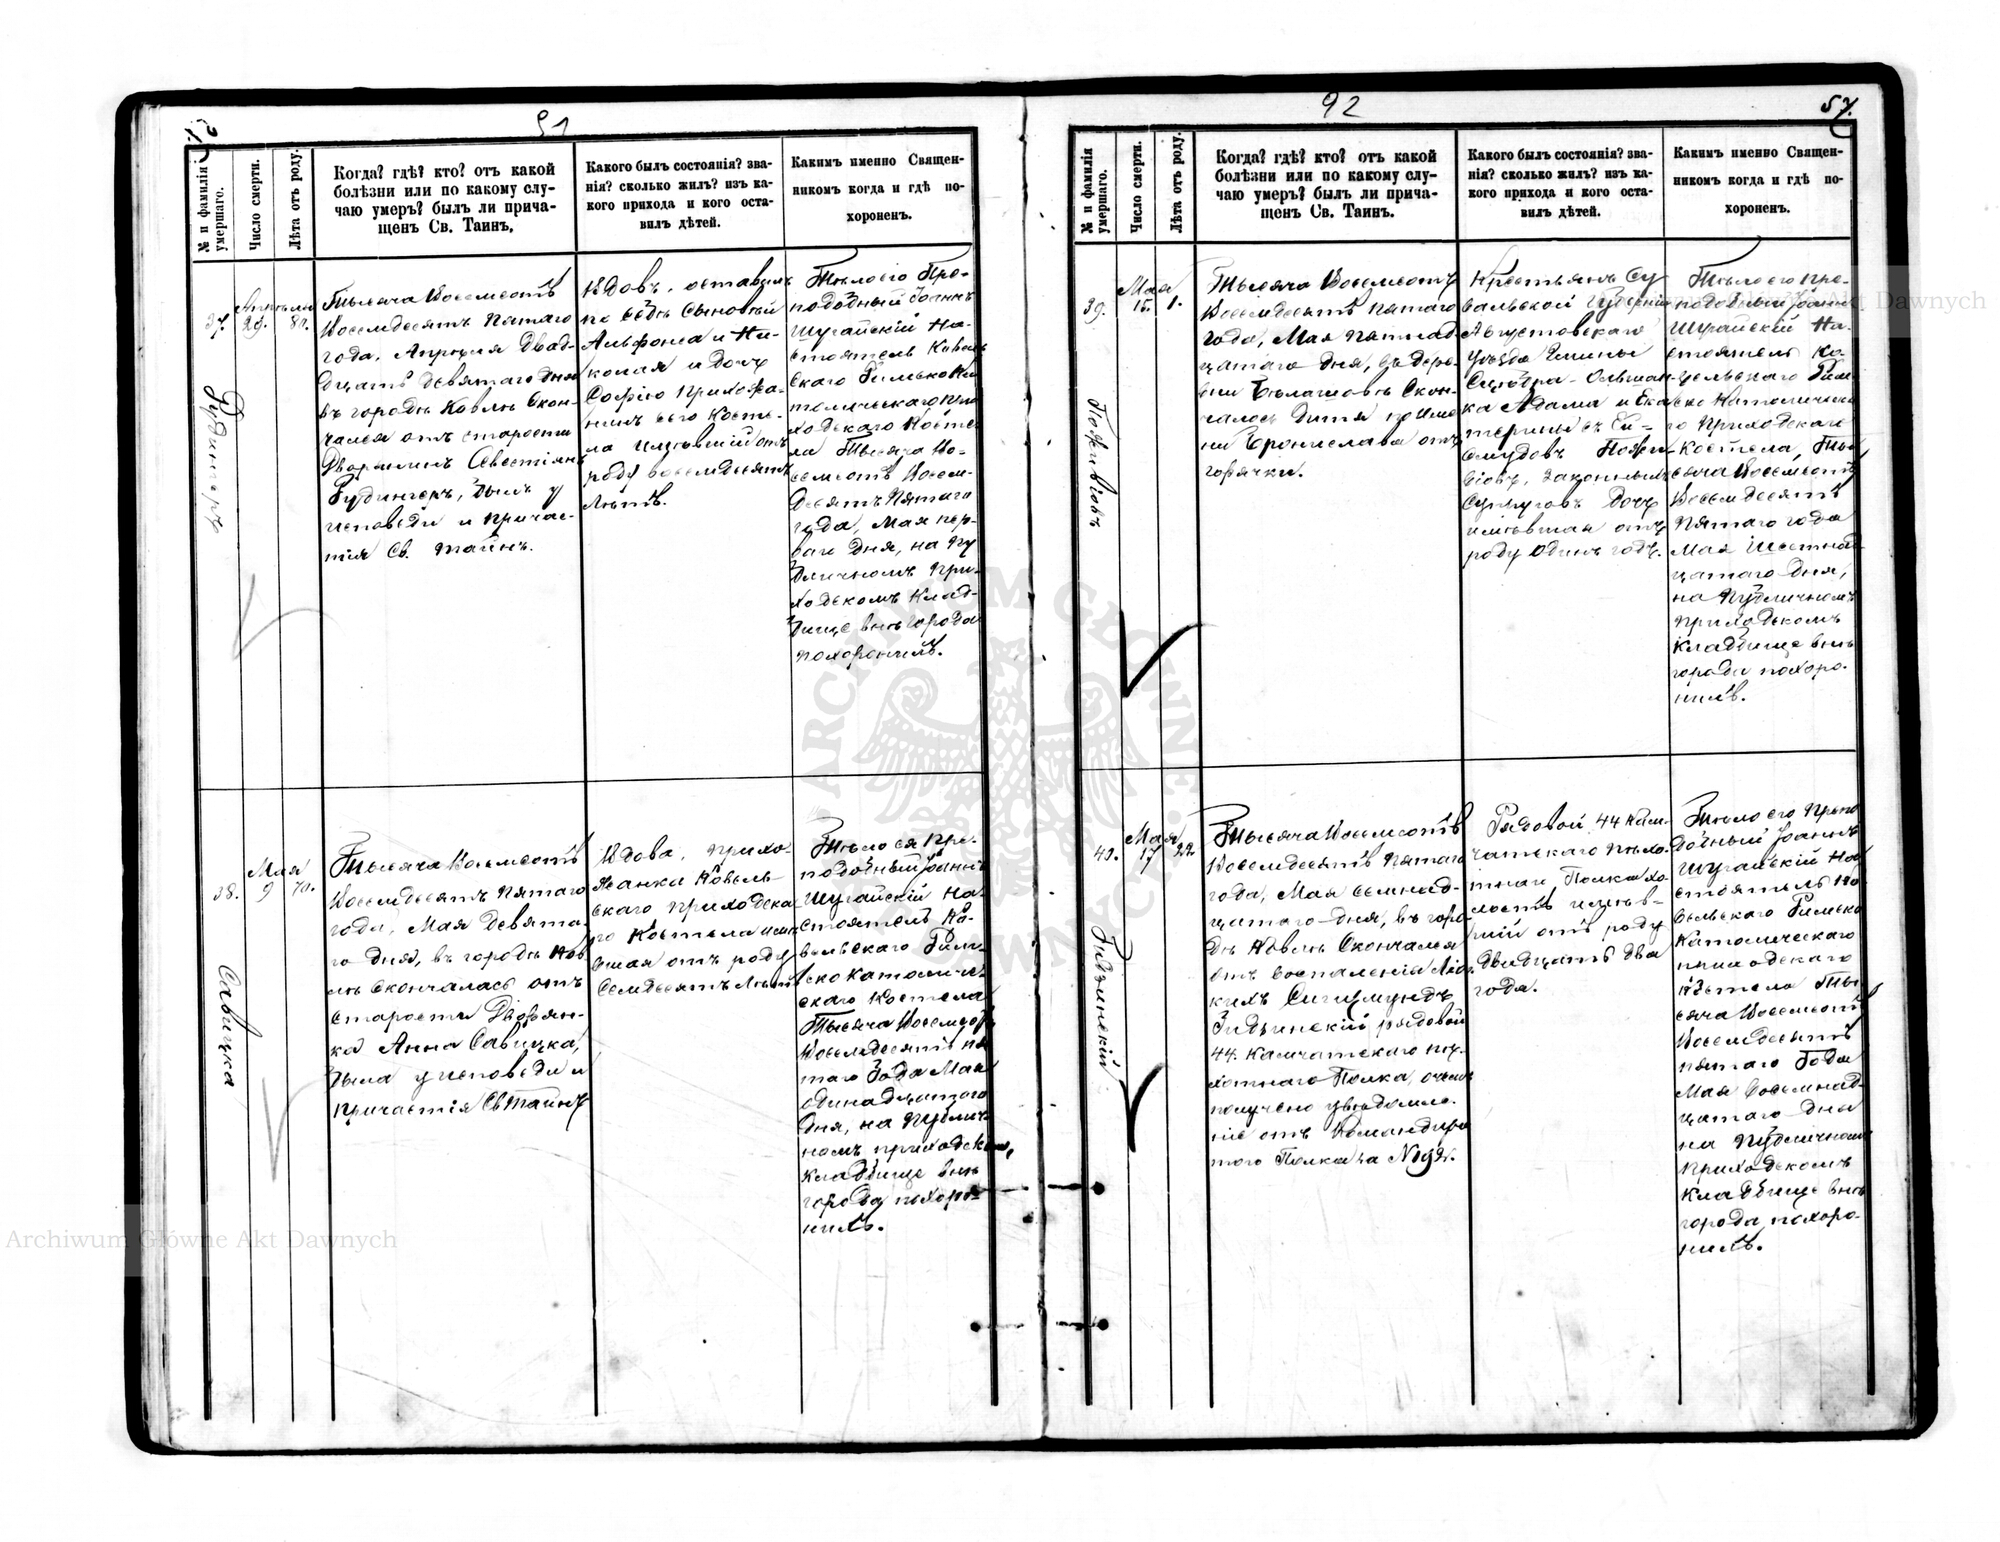 91
№ и фамилія умершаго.
Число смерти.
Лѣта отъ роду.
Когда? гдѣ? кто? отъ какой
болѣзни или по какому слу-
чаю умеръ? былъ ли прича-
щенъ Св. Таинъ.
Какого былъ состоянія? зва-
нія? сколько жилъ? изъ ка-
кого прихода и кого оста-
вилъ дѣтей.
Каким именно Священ-
никомъ когда и гдѣ по-
хороненъ.
37.
Апрѣля
29.
80.
Рудингеръ
Тысяча Восемсотъ
Восемдесятъ Пятаго
года, Апрѣля Двад-
цать девятаго дня
въ городѣ Ковлѣ Скон-
чался отъ старости
Дворянинъ
Рудингеръ, былъ у
исповѣди и причас-
тія Св. Тайнъ.
Вдовъ, оставилъ
по себѣ Сыновей
Альфонса и Ни-
колая и дочь
Софію Прихожа-
нинъ сего Косте-
ла имѣвшій отъ
роду восемдесятъ
лѣтъ.
Тѣло его Пре-
подобный Іоаннъ
Шугайскій На-
стоятель Ковель-
скаго Римско Ка-
толическаго При-
ходскаго Косте-
ла Тысяча Во-
семсотъ Восем-
десятъ Пятаго
года, Мая пер-
ваго Дня, на Пу-
бличномъ При-
ходскомъ Клад-
бище внѣ города
похоронилъ.
38.
Мая
9
70.
Савицка
Тысяча Восемсотъ
Восемдесятъ Пятаго
года, Мая Девята-
го дня, въ городѣ Ков-
лѣ скончалась отъ
старости Дворян-
ка Анна Савицка,
была у исповѣди и
причастія Св Тайнъ
Вдова, прихо-
жанка Ковель-
скаго приходска-
го Костела имѣ-
вшая отъ роду
Семдесятъ лѣтъ
Тѣло ея Пре-
подобный Іоаннъ
Шугайскій На-
стоятель Ко-
вельскаго Рим-
ско Католиче-
скаго Костела
Тысяча Восемсотъ
Восемдесятъ пя-
таго Года Мая
одинадцатого
Дня, на Публич-
номъ приходском,
кладбище внѣ
города похоро-
нилъ.
92
57.
№ и фамилія умершаго.
Число смерти.
Лѣта отъ роду.
Когда? гдѣ? кто? отъ какой
болѣзни или по какому слу-
чаю умеръ? былъ ли прича-
щенъ Св. Таинъ.
Какого былъ состоянія? зва-
нія? сколько жилъ? изъ ка-
кого прихода и кого оста-
вилъ дѣтей.
Каким именно Священ-
никомъ когда и гдѣ по-
хороненъ.
39.
Мая
15.
1.
Тысяча Восемсотъ
Восемдесятъ пятаго
года, Мая пятнад-
цатаго дня, въ дере-
вни Скон-
чалось Дитя по име-
ни Бронислава отъ
горячки.
Крестьянъ Су-
вальской Губерніи
Августовскаго
Уѣзда Гмины
ка Адама и Ека-
терины съ
законныхъ
Супруговъ Дочь
имѣвшая отъ
роду Одинъ годъ.
Тѣло его Пре-
подобный Іоаннъ
Шугайскій На-
стоятель Ко-
вельскаго Рим-
ско Католическа-
го Приходскаго
Костела, Ты-
сяча Восемсотъ
Восемдесятъ
Пятаго года
Мая Шестнад-
цатаго Дня,
на Публичномъ
приходскомъ
кладбище внѣ
города похоро-
нилъ.
40.
Мая
17
22
Тысяча Восемсотъ
Восемдесятъ Пятаго
года, Мая семнад-
цатаго дня, въ горо-
дѣ Ковлѣ Скончался
отъ воспаленія Лег-
кихъ Сигизмундъ
рядовой
44. Камчатскаго пѣ-
хотнаго Полка, о чемъ
получено увѣдомле-
ніе отъ Командира
того Полка за №
Рядовой 44 Кам-
чатскаго пѣхо-
тнаго Полка хо-
лостъ имѣв-
шій отъ роду
двадцать два
года.
Тѣло его Препо-
добный Іоаннъ
Шугайскій На-
стоятель Ко-
вельскаго Римско
Католическаго
приходскаго
Костела Ты-
сяча Восемсотъ
Восемдесятъ
пятаго Года
Мая Восемнад-
цатаго Дня
на Публичномъ
Приходскомъ
кладбище внѣ
города похоро-
нилъ.
Archiwum Główne Akt Dawnych